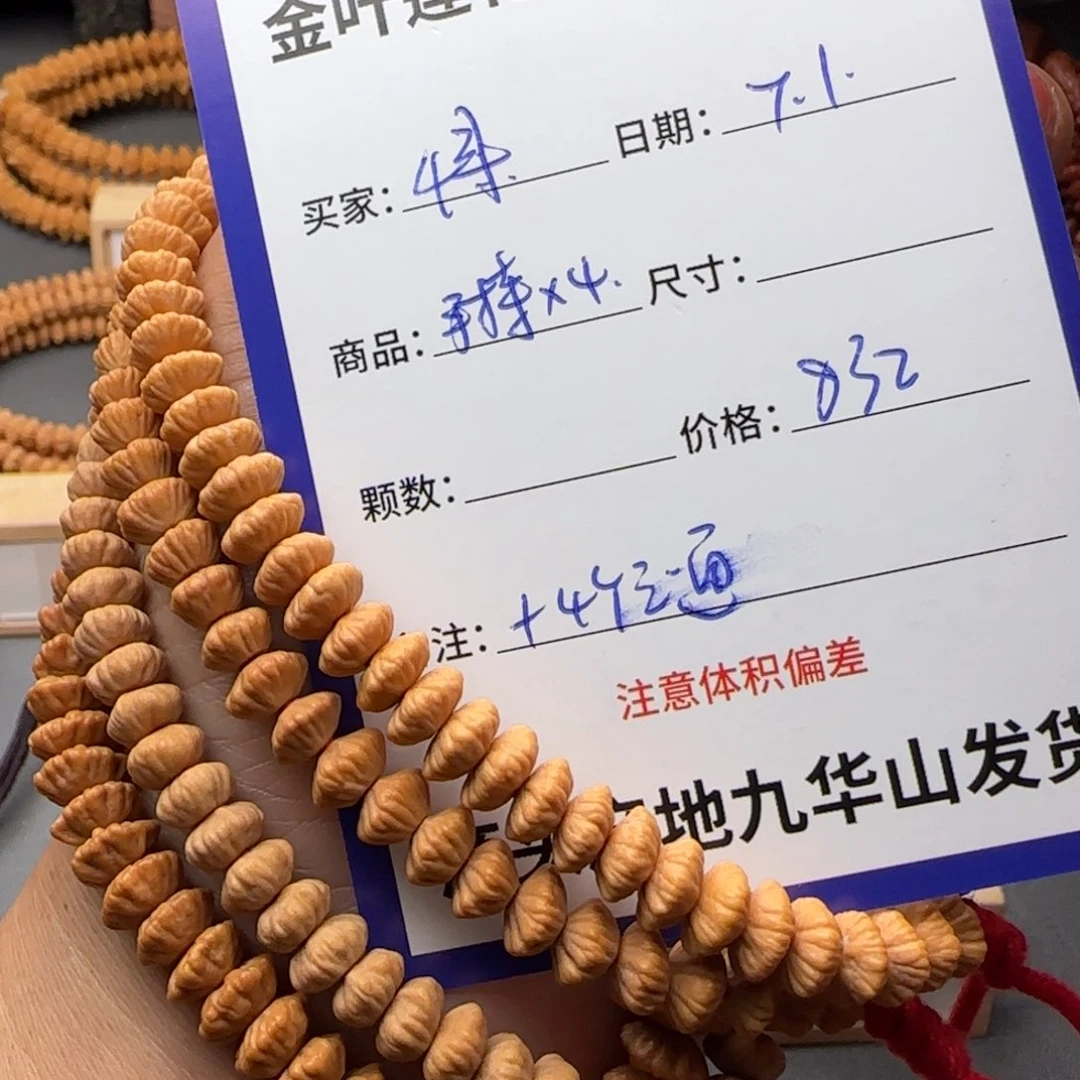 金叶莲
买家: 日期: 7.1.
商品: 手持×4. 尺寸:
颗数: 价格: 832
注: +4
注意体积偏差
地九华山发货